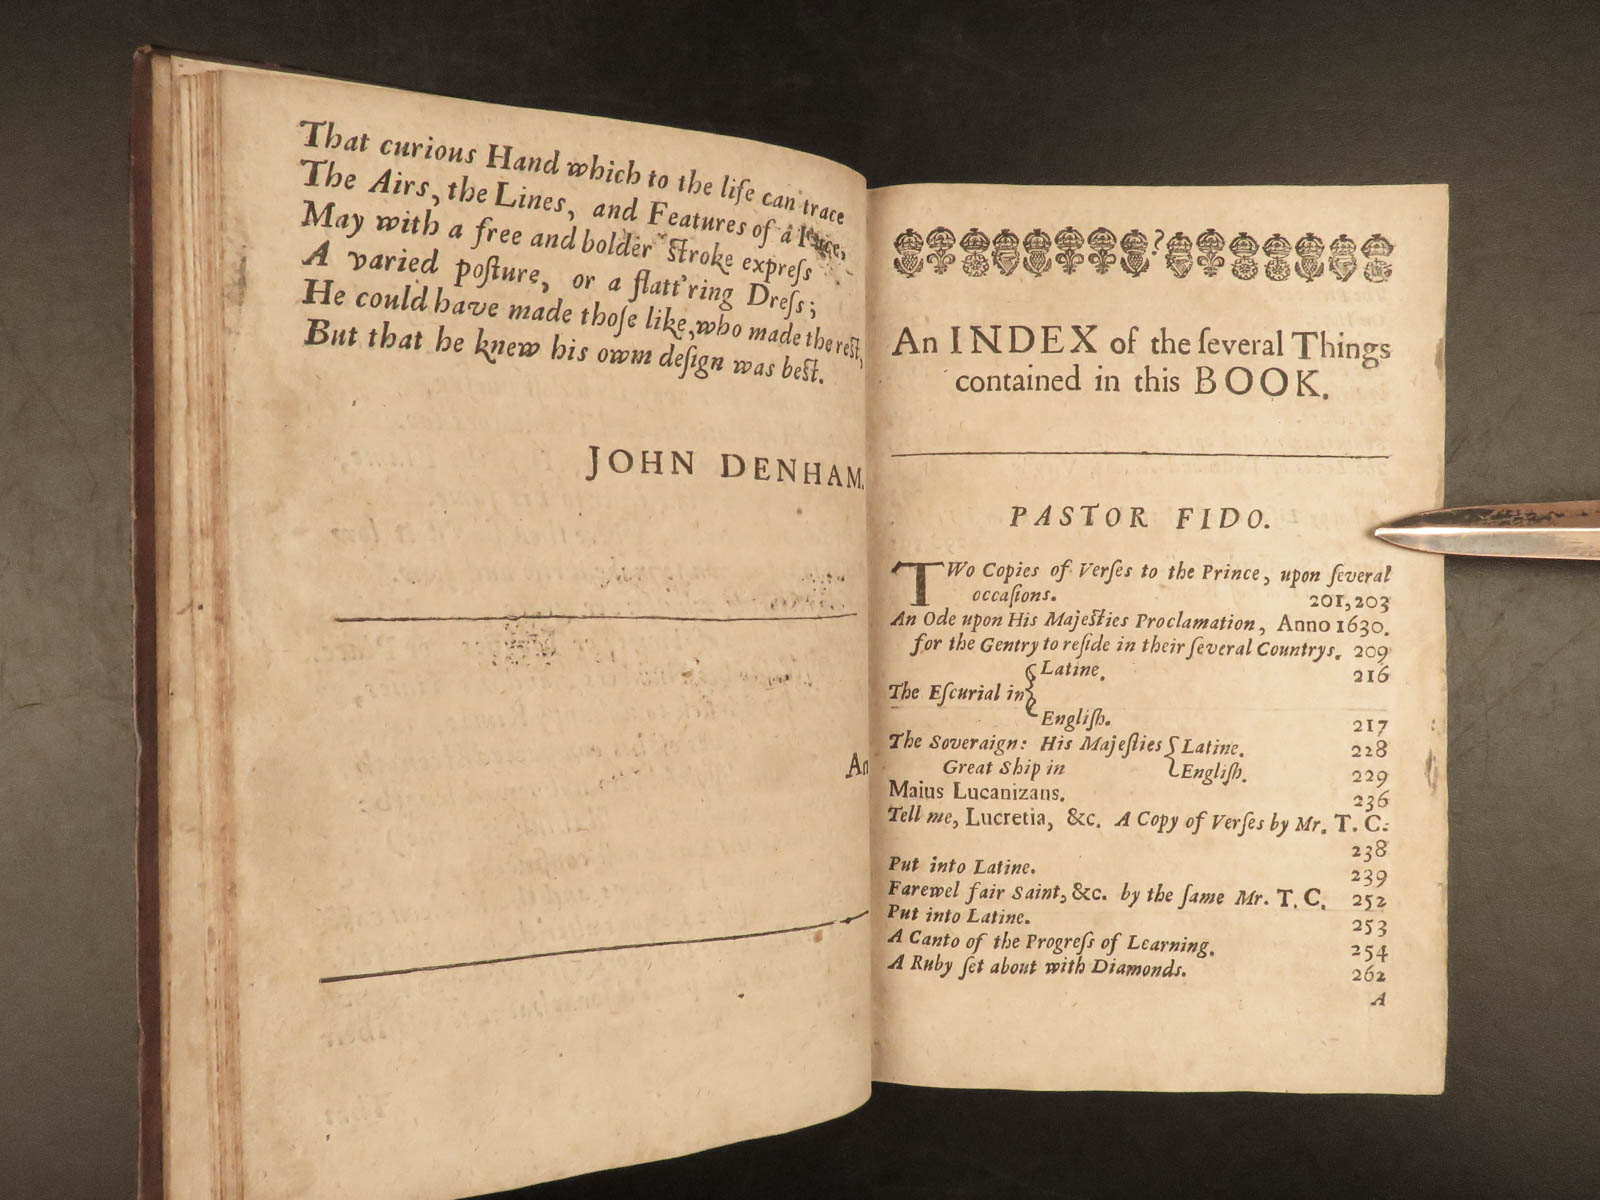 That curious Hand which to the life can trace
The Airs, the Lines, and Features of a Face,
May with a free and bolder stroke expreſs
A varied poſture, or a flatt'ring Dreſs;
He could have made thoſe like, who made the rest,
But that he knew his owm deſign was best.
JOHN DENHAM.
An
An INDEX of the ſeveral Things
contained in this BOOK.
PASTOR FIDO.
TWo Copies of Verſes to the Prince, upon ſeveral
occaſions. 201, 203
An Ode upon His Majesties Proclamation, Anno 1630.
for the Gentry to reſide in their ſeveral Countrys. 209
Latine. 216
The Eſcurial in
Engliſh. 217
The Soveraign: His Majeſties Latine. 228
Great Ship in Engliſh. 229
Maius Lucanizans. 236
Tell me, Lucretia, &c. A Copy of Verſes by Mr. T. C.
238
Put into Latine. 239
Farewel fair Saint, &c. by the ſame Mr. T. C. 252
Put into Latine. 253
A Canto of the Progreſs of Learning. 254
A Ruby ſet about with Diamonds. 262
A